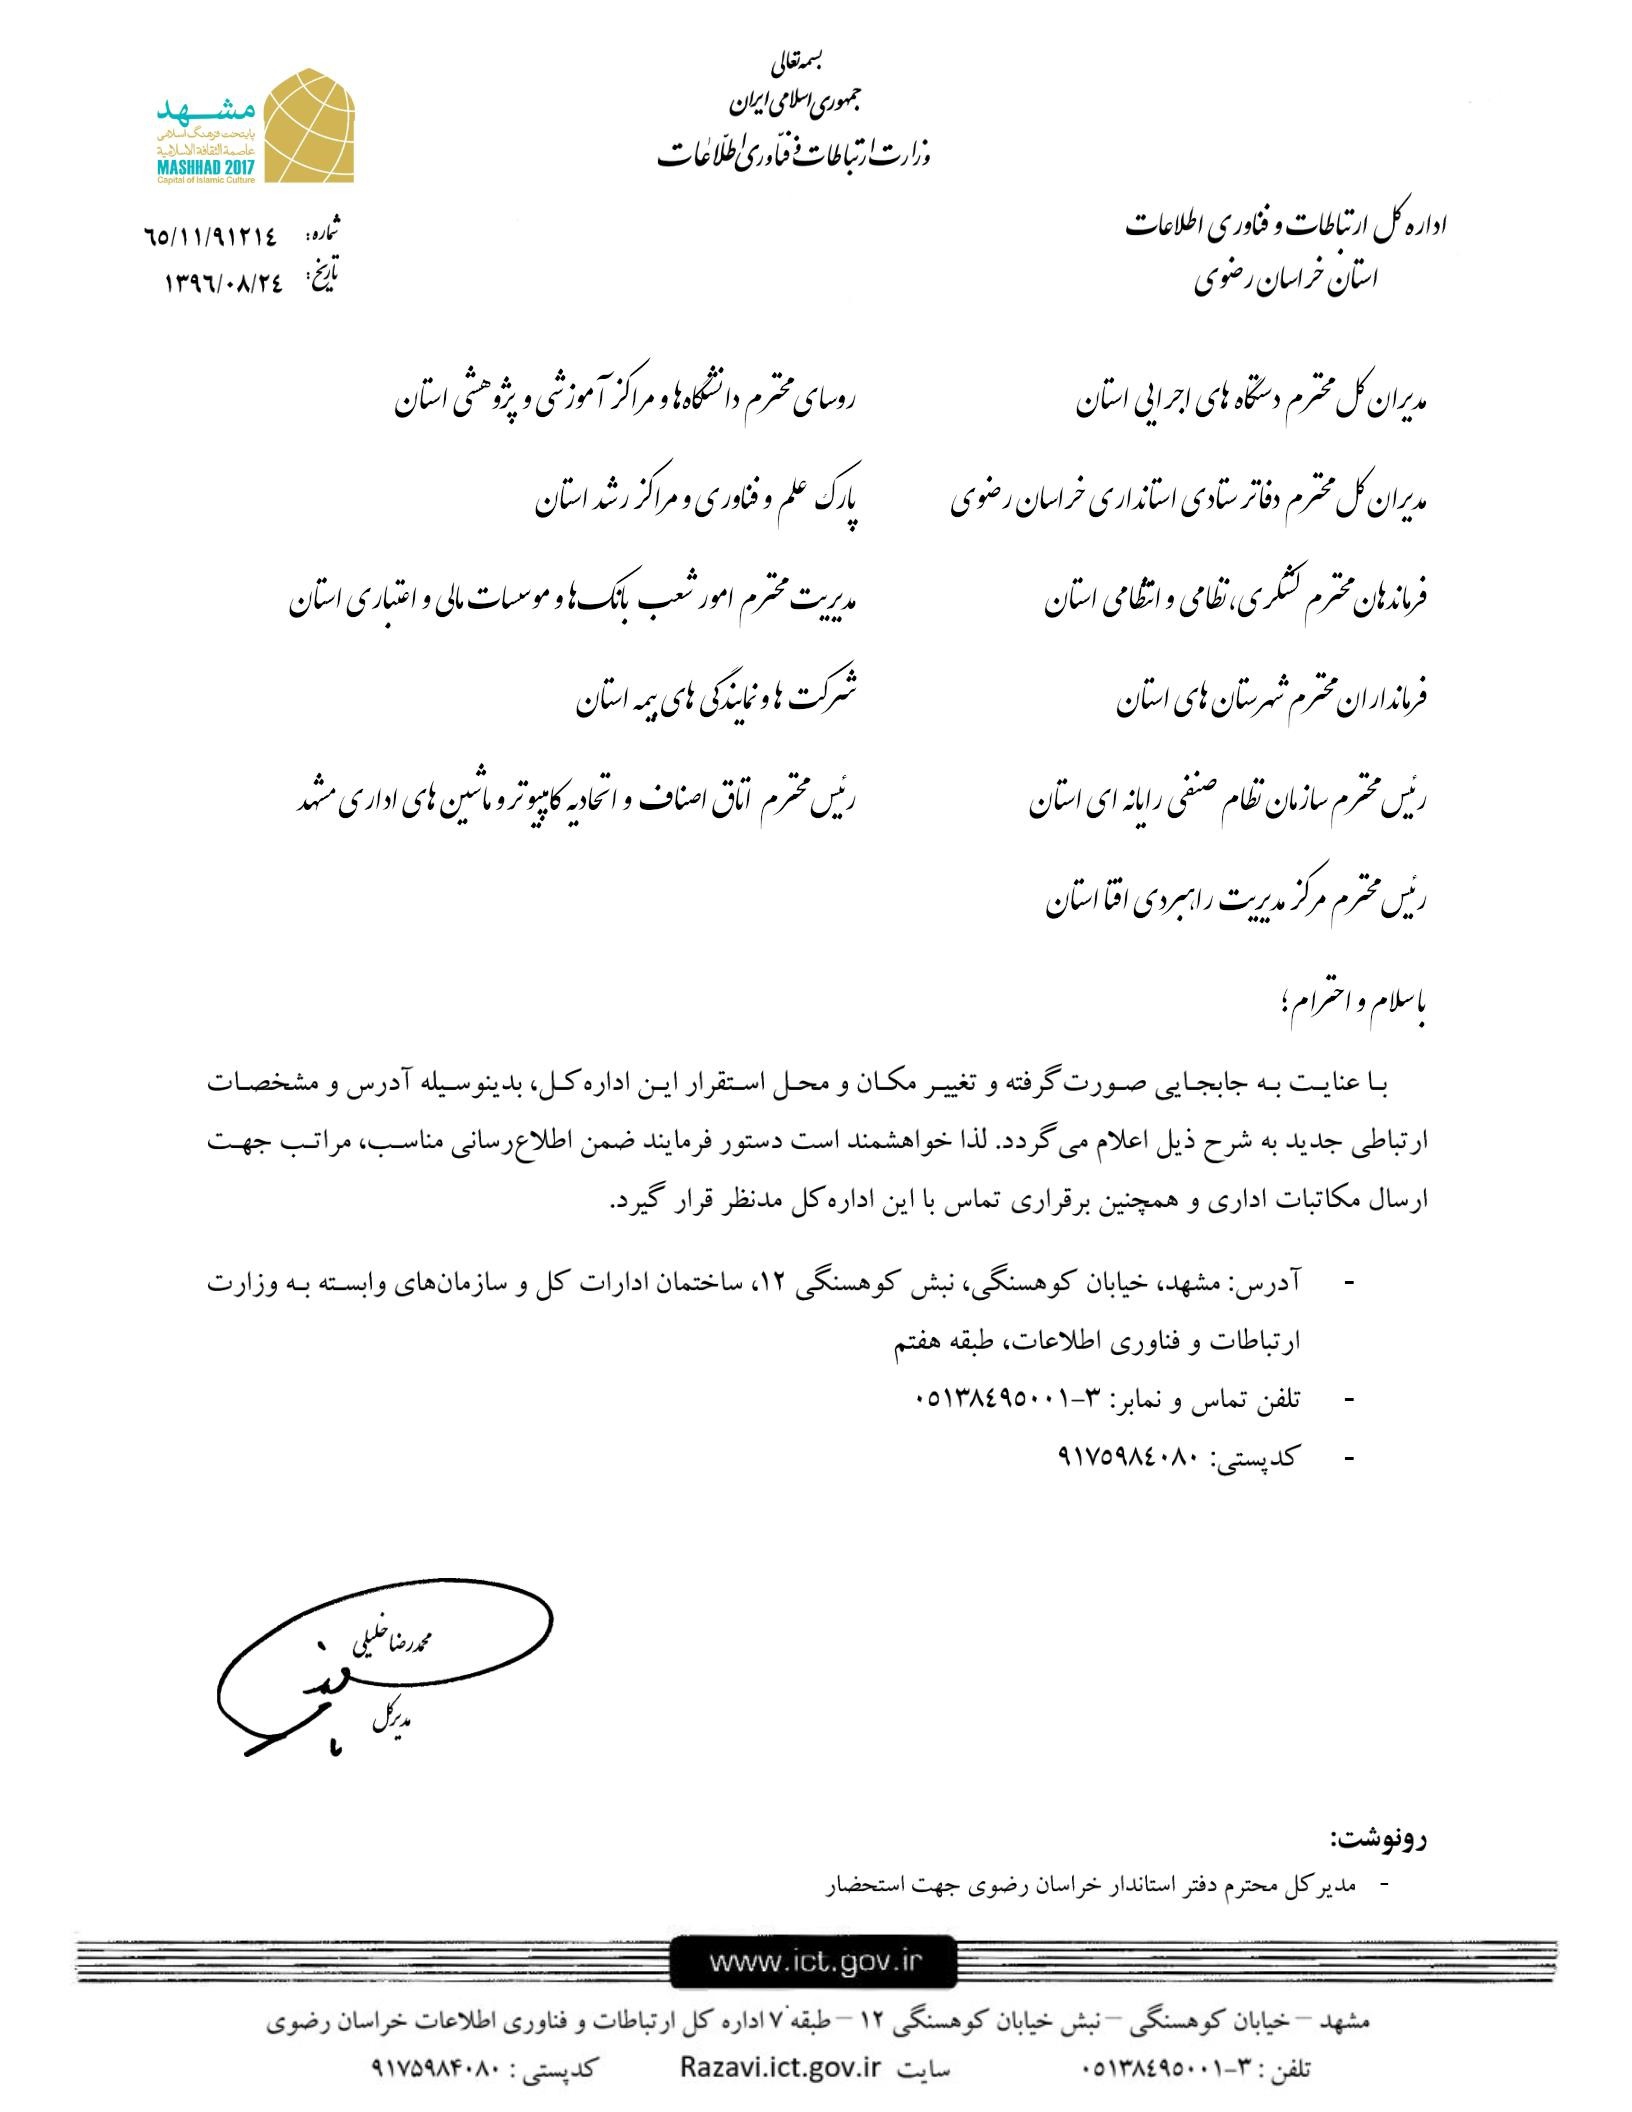 بسمه تعالی
جمهوری اسلامی ایران
وزارت ارتباطات و فنّاوری اطّلاعات
مشهد
پایتخت فرهنگ اسلامی
عاصمة الثقافة الإسلامية
MASHHAD 2017
Capital of Islamic Culture
شماره: ٦٥/١١/٩١٢١٤
تاریخ: ١٣٩٦/٠٨/٢٤
اداره کل ارتباطات و فناوری اطلاعات
استان خراسان رضوی
مدیران کل محترم دستگاه های اجرایی استان روسای محترم دانشگاه‌ها و مراکز آموزشی و پژوهشی استان
مدیران کل محترم دفاتر ستادی استانداری خراسان رضوی پارک علم و فناوری و مراکز رشد استان
فرماندهان محترم لشگری، نظامی و انتظامی استان مدیریت محترم امور شعب بانک‌ها و موسسات مالی و اعتباری استان
فرمانداران محترم شهرستان های استان شرکت ها و نمایندگی های بیمه استان
رئیس محترم سازمان نظام صنفی رایانه ای استان رئیس محترم اتاق اصناف و اتحادیه کامپیوتر و ماشین های اداری مشهد
رئیس محترم مرکز مدیریت راهبردی افتا استان
با سلام و احترام؛
با عنایت به جابجایی صورت‌گرفته و تغییر مکان و محل استقرار این اداره‌کل، بدینوسیله آدرس و مشخصات
ارتباطی جدید به شرح ذیل اعلام می‌گردد. لذا خواهشمند است دستور فرمایند ضمن اطلاع‌رسانی مناسب، مراتب جهت
ارسال مکاتبات اداری و همچنین برقراری تماس با این اداره‌کل مدنظر قرار گیرد.
- آدرس: مشهد، خیابان کوهسنگی، نبش کوهسنگی ۱۲، ساختمان ادارات کل و سازمان‌های وابسته به وزارت
ارتباطات و فناوری اطلاعات، طبقه هفتم
- تلفن تماس و نمابر: ٣-٠٥١٣٨٤٩٥٠٠١
- کدپستی: ٩١٧٥٩٨٤٠٨٠
محمدرضا خلیلی
مدیرکل
رونوشت:
- مدیر کل محترم دفتر استاندار خراسان رضوی جهت استحضار
www.ict.gov.ir
مشهد – خیابان کوهسنگی – نبش خیابان کوهسنگی ۱۲ – طبقه ۷ اداره کل ارتباطات و فناوری اطلاعات خراسان رضوی
تلفن : ٣-٠٥١٣٨٤٩٥٠٠١ سایت Razavi.ict.gov.ir کدپستی : ۹۱۷۵۹۸۴۰۸۰